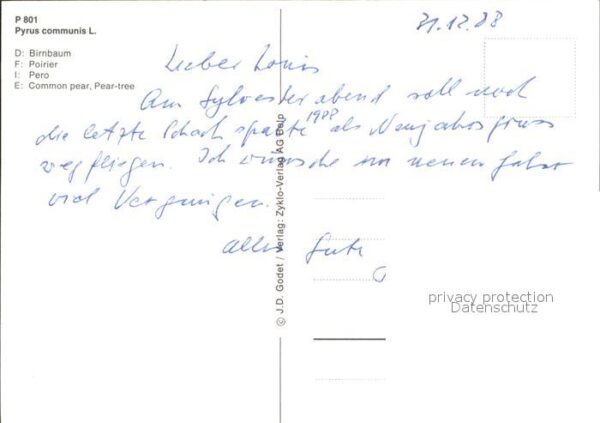 P 801
Pyrus communis L.
D: Birnbaum
F: Poirier
I: Pero
E: Common pear, Pear-tree
31.12.88
Lieber Louis
Am Sylvesterabend soll noch
die letzte Schachsparte 1988 als Neujahrsgruss
wegfliegen. Ich wünsche im neuen Jahr
viel Vergnügen.
alles Gute
© J.D. Godet / Verlag: Zyklo-Verlag AG Belp
privacy protection
Datenschutz